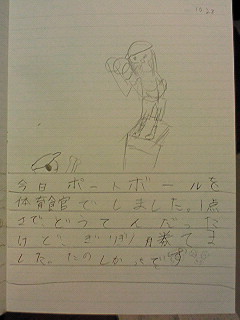 10.23
今日ボートボールを
体育館でしました。1点
さで、どうてんだった
けど、ぎりぎり勝てま
した。たのしかったです